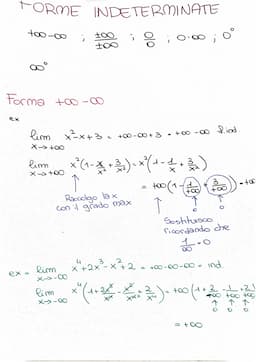 FORME INDETERMINATE
+∞-∞ ; ±∞/±∞ ; 0/0 ; 0·∞ ; 0⁰
∞⁰
Forma +∞-∞
ex
lim x→+∞ x²-x+3 = +∞-∞+3 = +∞-∞ f.ind.
lim x→+∞ x²(1-x/x²+3/x²) = x²(1-1/x+3/x²)
= +∞(1-1/+∞+3/+∞) = +∞
Raccolgo la x
con il grado max
0 0
Sostituisco
ricordando che
1/∞ = 0
ex = lim x→-∞ x⁴+2x³-x²+2 = +∞-∞-∞ = ind.
lim x→-∞ x⁴(1+2x³/x⁴-x²/x⁴+2/x⁴) = +∞(1+2/-∞-1/+∞+2/+∞)
0 0 0
= +∞